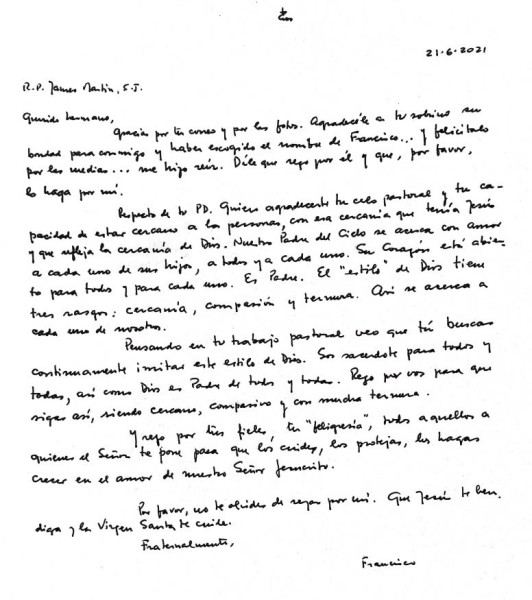 21-6-2021
R.P. James Martin, S.J.
Querido hermano,
Gracias por tu correo y por las fotos. Agradecéle a tu sobrino su
bondad para conmigo y haber escogido el nombre de Francisco... y felicítalo
por las medias... me hizo reir. Dile que rezo por él y que, por favor,
lo haga por mí.
Respecto de tu PD. Quiero agradecerte tu celo pastoral y tu ca-
pacidad de estar cercano a las personas, con esa cercanía que tenía Jesús
y que refleja la cercanía de Dios. Nuestro Padre del Cielo se acerca con amor
a cada uno de sus hijos, a todos y a cada uno. Su Corazón está abier-
to para todos y para cada uno. Es Padre. El "estilo" de Dios tiene
tres rasgos: cercanía, compasión y ternura. Así se acerca a
cada uno de nosotros.
Pensando en tu trabajo pastoral veo que tú buscas
continuamente imitar este estilo de Dios. Sos sacerdote para todos y
todas, así como Dios es Padre de todos y todas. Rezo por vos para que
sigas así, siendo cercano, compasivo y con mucha ternura.
Y rezo por tus fieles, tu "feligresía", todos aquellos a
quienes el Señor te pone para que los cuides, los protejas, los hagas
crecer en el amor de nuestro Señor Jesucristo.
Por favor, no te olvides de rezar por mí. Que Jesús te ben-
diga y la Virgen Santa te cuide.
Fraternalmente,
Francisco